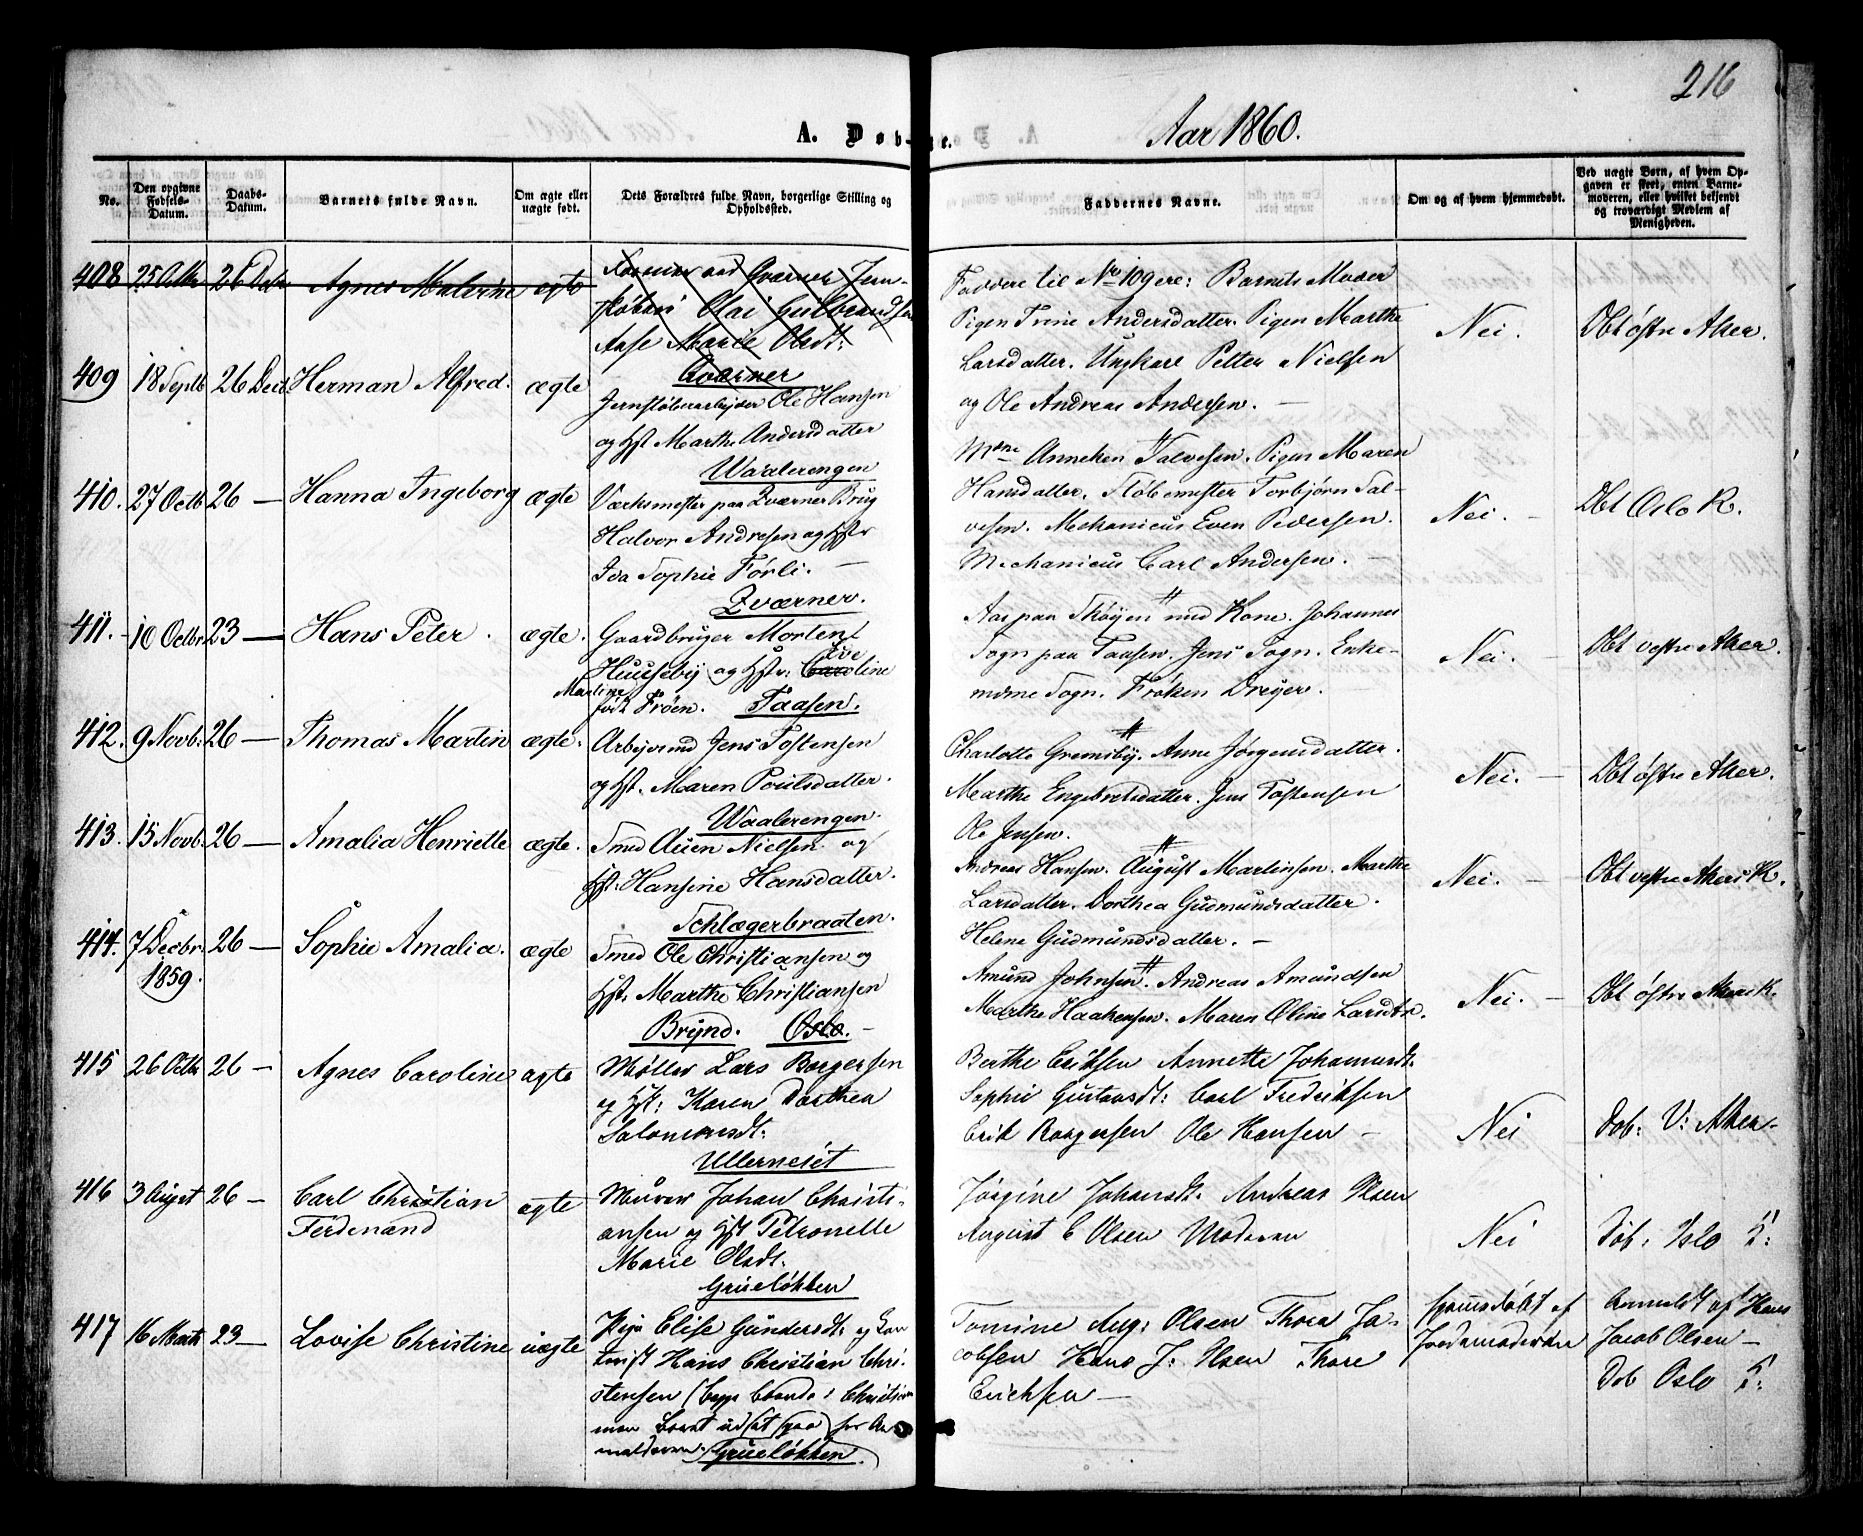 216
A. Døbte.
Aar 1860.
No.
Den opgivne Fødsels-Datum.
Daabs-Datum.
Barnets fulde Navn.
Om ægte eller uægte født.
Dets Forældres fulde Navn, borgerlige Stilling og Opholdssted.
Faddernes Navne.
Om og af hvem hjemmedøbt.
Ved uægte Børn, af hvem Opgaven er skeet, enten Barnemoderen, eller hvilket bekjendt og troværdigt Medlem af Menigheden.
408 25 Octbr 26 Decbr Agnes Malerine egte
Qværner Jern-
støberi Olai Gulbrandsen
Aase Marie Olsdt:
Qværner
Faddere til No 109 ere: Barnets Moder
Pigen Trine Andersdatter. Pigen Marthe
Larsdatter. Ungkarl Petter Nielsen
og Ole Andreas Andersen. —
Nei.
Dbt østre Aker.
409 18 Septb 26 Decb. Herman Alfred. ægte
Jernstøberarbejder Ole Hansen
og Hst Marthe Andersdatter
Waalerengen
410. 27 Octb 26 — Hanna Ingeborg ægte
Værksmester paa Qværner Brug
Halvor Andresen og Hstr
Iva Sophie Førli. —
Qværner.
Mdme Anneken Talvesen. Pigen Maren
Hansdatter. Støbemester Torbjørn Tal-
vesen. Mechanicus Even Pedersen.
Mechanicus Carl Andersen. —
Nei. —
Dbt Oslo K.
411. 10 Octbr 23 — Hans Peter. ægte.
Gaardbruger Morten
Huuseby og Hstr: Caroline
Eve
Martine
født Frøen. Taasen.
Aas paa Skøyen med Kone. Johannes
Sogn paa Taasen. Jens Sogn. Enke-
mdme Sogn. Frøken Dreyer.
Nei. —
Dbt vestre Aker.
412. 9 Novb: 26 — Thomas Martin ægte.
Arbejdsmd Jens Tostensen
og Hst. Maren Poulsdatter.
Waalerengen.
Charlotte Gremsby. Anne Jørgensdatter.
Marthe Engebretsdatter. Jens Tostensen
Ole Jensen.
Nei. —
Dbt østre Aker.
413. 15 Novb. 26 — Amalia Henriette ægte.
Smed Auen Nielsen og
Hst. Hansine Hansdatter.
Schlægerbraaten.
Andreas Hansen. August Martinsen. Marthe
Larsdatter. Dorthea Gudmundsdatter.
Helene Gudmundsdatter. —
Nei. —
Dbt vestre Akers K.
414. 7 Decbr. 1859. 26 — Sophie Amalia. ægte
Smed Ole Christiansen og
Hst: Marthe Christiansen
Brynd. Oslo. —
Amund Johnsen. Andreas Amundsen
Marthe Haakensen. Maren Oline Larsdtr.
Nei. —
Dbt østre Akers K.
415 26 Octbr 26 — Agnes Caroline ægte
Møller Lars Borgersen
og Hst: Karen Dorthea
Salomonsdt:
Ullernsiet
Berthe Eriksen Annette Johannesdt:
Sophie Gustavsdt: Carl Fredriksen
Erik Borgersen Ole Hansen —
Nei
Døb: V: Aker —
416 3 August 26 — Carl Christian
Ferdenand ægte
Murer Johan Christi-
ansen og Hst Petronelle
Marie Olsdt:
Grüeløkken
Jørgine Johansdt. Andreas Olsen
August E Olsen Moderen
Nei
Døb: Oslo K:
417 16 Marts 23 — Lovise Christine uægte
Pige Elise Gundersdt: og
Hans Christian Chri-
stensen
Grüeløkken.
Tomine Aug: Olsen Thora Ja-
cobsen Hans J: Olsen Thore
Erichsen —
hjemmedøbt af
Jordemoderen
Anmeldt af Hans
Jacob Olsen —
Døb Oslo K: